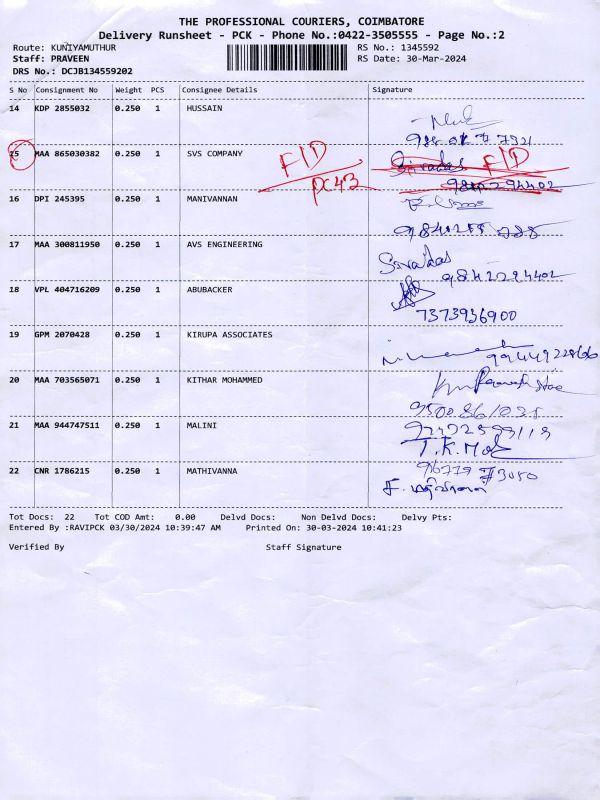 THE PROFESSIONAL COURIERS, COIMBATORE
Delivery Runsheet - PCK - Phone No.:0422-3505555 - Page No.:2
Route: KUNIYAMUTHUR RS No.: 1345592
Staff: PRAVEEN RS Date: 30-Mar-2024
DRS No.: DCJB134559202
S No Consignment No Weight PCS Consignee Details Signature
14 KDP 2855032 0.250 1 HUSSAIN
15 MAA 865030382 0.250 1 SVS COMPANY F/D Sivadas F/D
PC43 9842294402
16 DPI 245395 0.250 1 MANIVANNAN
17 MAA 300811950 0.250 1 AVS ENGINEERING Sivadas
9842294402
18 VPL 404716209 0.250 1 ABUBACKER
7373936900
19 GPM 2070428 0.250 1 KIRUPA ASSOCIATES
20 MAA 703565071 0.250 1 KITHAR MOHAMMED
21 MAA 944747511 0.250 1 MALINI
22 CNR 1786215 0.250 1 MATHIVANNA
Tot Docs: 22 Tot COD Amt: 0.00 Delvd Docs: Non Delvd Docs: Delvy Pts:
Entered By :RAVIPCK 03/30/2024 10:39:47 AM Printed On: 30-03-2024 10:41:23
Verified By Staff Signature